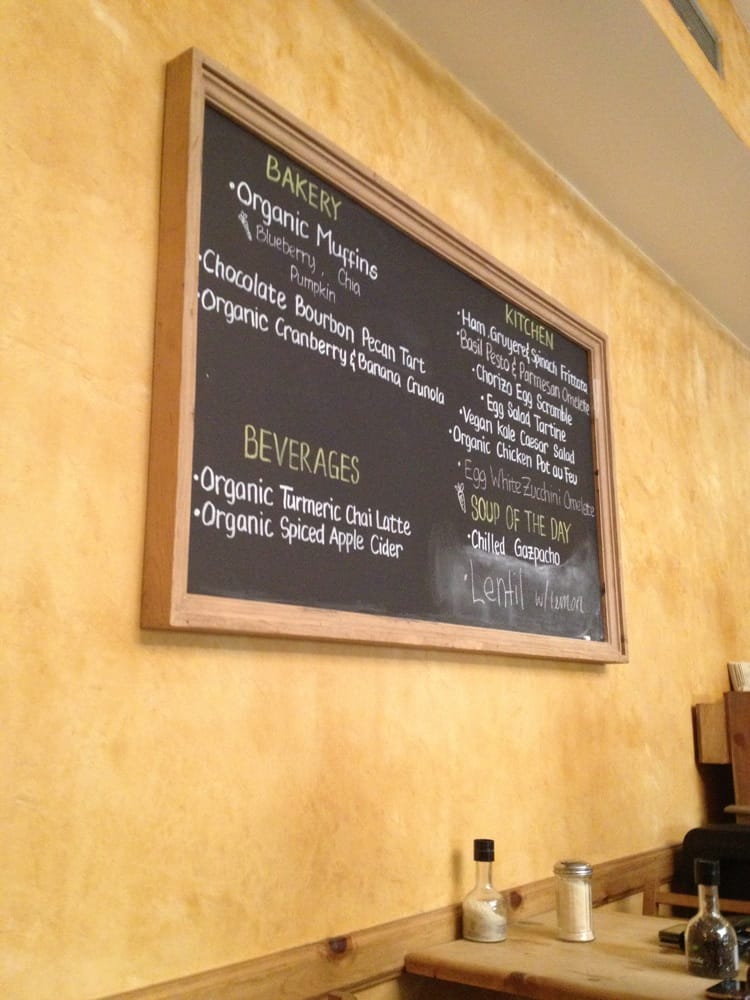 BAKERY
• Organic Muffins
Blueberry, Chia
Pumpkin
• Chocolate Bourbon Pecan Tart
• Organic Cranberry & Banana Crunola
BEVERAGES
• Organic Turmeric Chai Latte
• Organic Spiced Apple Cider
KITCHEN
• Ham, Gruyere & Spinach Frittata
• Basil Pesto & Parmesan Omelete
• Chorizo Egg Scramble
• Egg Salad Tartine
• Vegan Kale Caesar Salad
• Organic Chicken Pot au Feu
• Egg White Zucchini Omelete
SOUP OF THE DAY
• Chilled Gazpacho
• Lentil w/ lemon